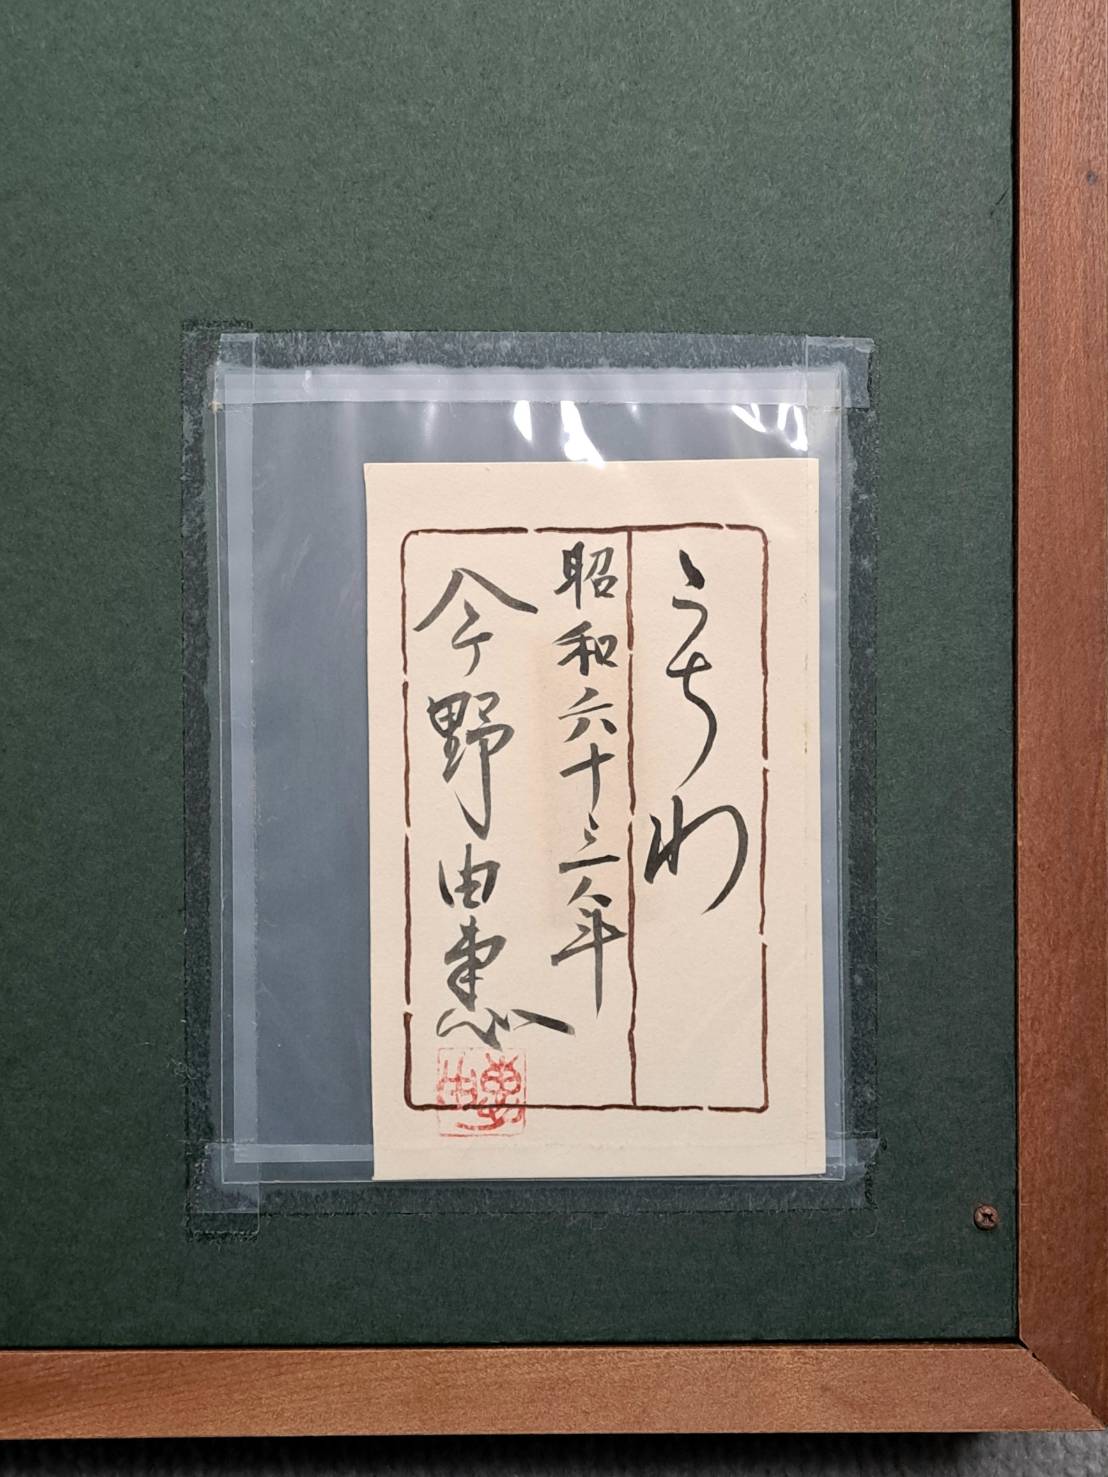 うちわ
昭和六十三年
今野由恵